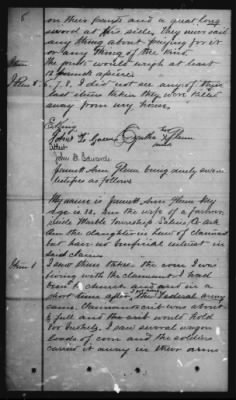 8
on their pants and a great long
sword at his sides, they never said
any thing about paying for it
or any thing of the kind.
Item The pork would weigh at least
12 pounds apiece
Item 5, 6, 7, 8. I did not see any of these
last items taken they were killed
away from my home.
Cynthia Glenn
her
mark
Attest
John D. Edwards
Jennett Ann Glenn being duly sworn
testifies as follows
My name is Jennett Ann Glenn My
age is 32. am the wife of a farmer
Marble Township Saline Co Ark
Am the daughter in law of claimant
but have no beneficial interest in
said claim
Item 1 I saw them take the corn I was
living with the claimant I had
been to church and in a
short time after, the Federal army
came. Claimants crib was about
½ full and the crib would hold
bushels. I saw several wagon
loads of corn and the soldiers
carried it away in their arms